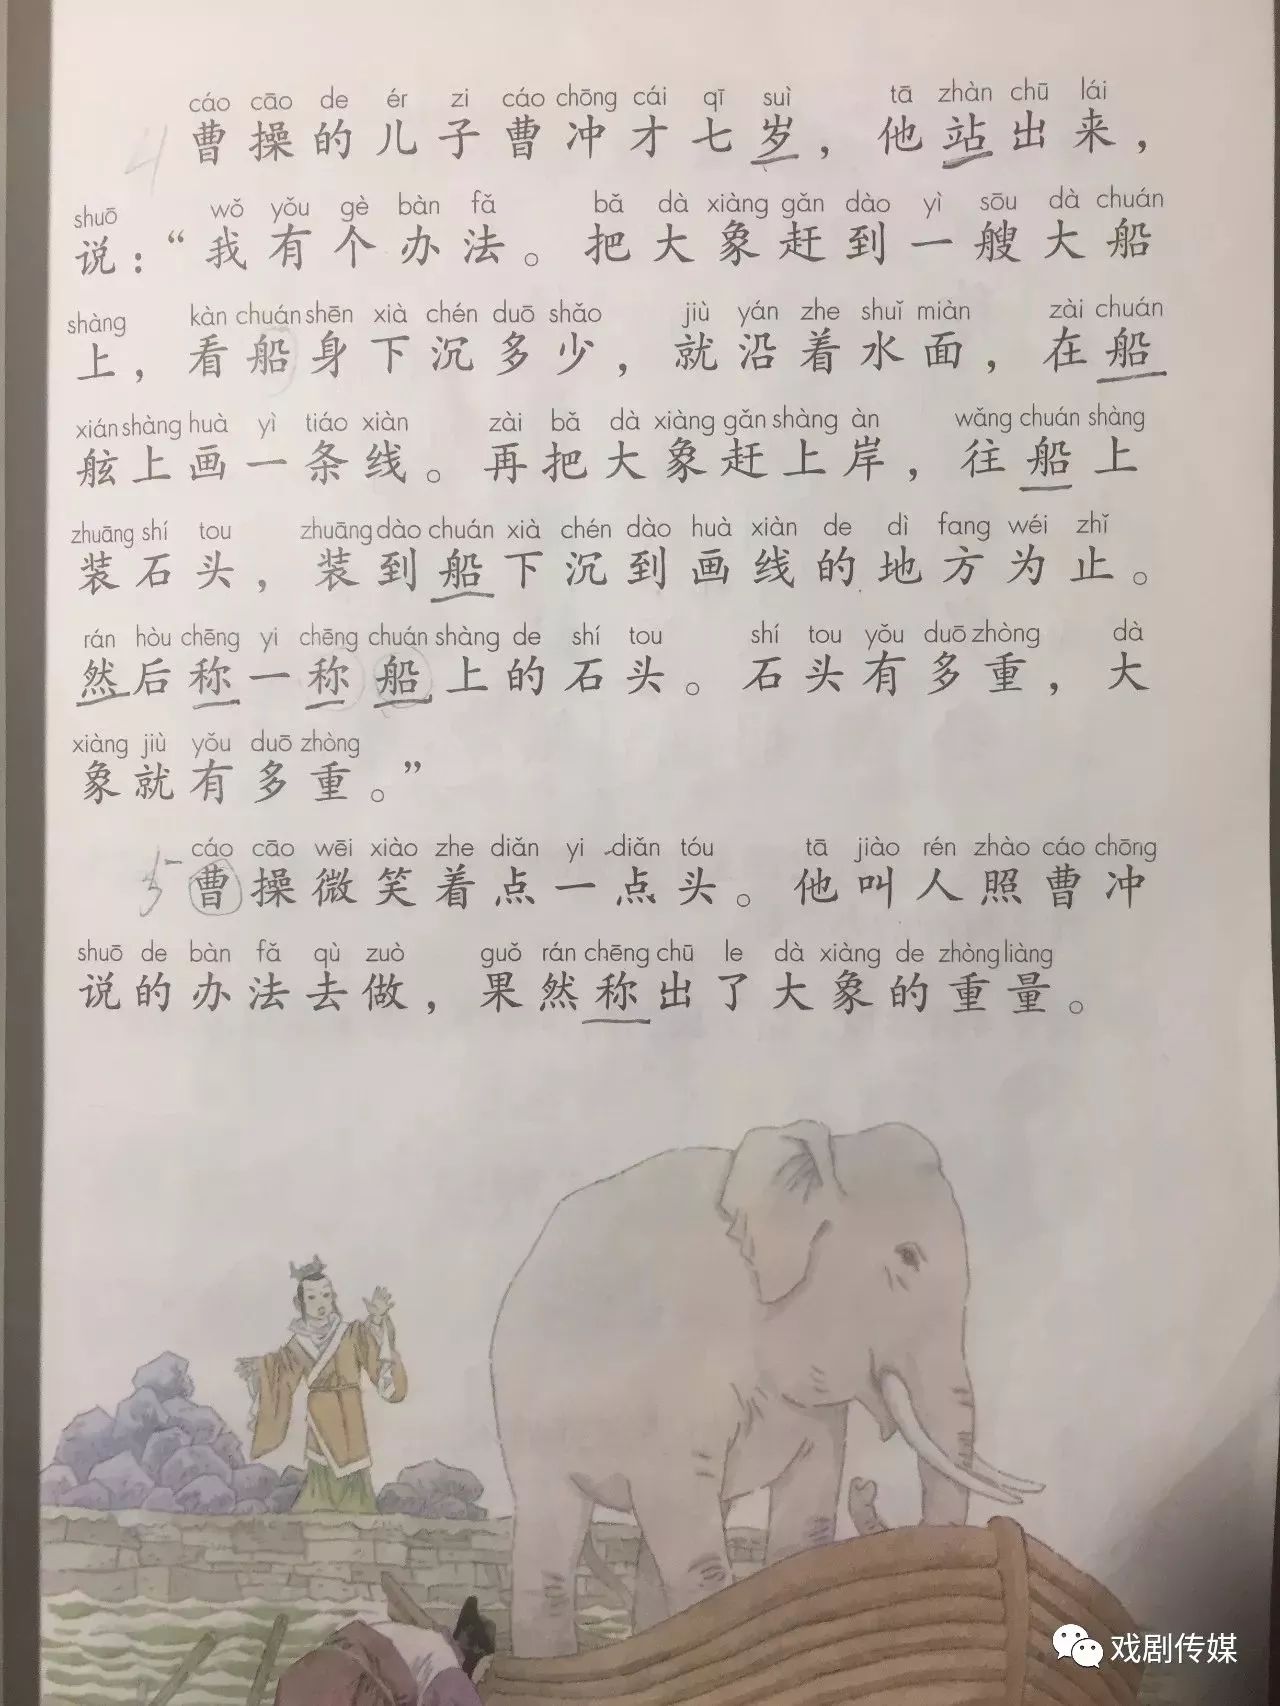 cáo cāo de ér zi cáo chōng cái qī suì tā zhàn chū lái
4 曹操的儿子曹冲才七岁，他站出来，
shuō wǒ yǒu gè bàn fǎ bǎ dà xiàng gǎn dào yì sōu dà chuán
说：“我有个办法。把大象赶到一艘大船
shàng kàn chuán shēn xià chén duō shǎo jiù yán zhe shuǐ miàn zài chuán
上，看船身下沉多少，就沿着水面，在船
xián shàng huà yì tiáo xiàn zài bǎ dà xiàng gǎn shàng àn wǎng chuán shàng
舷上画一条线。再把大象赶上岸，往船上
zhuāng shí tou zhuāng dào chuán xià chén dào huà xiàn de dì fang wéi zhǐ
装石头，装到船下沉到画线的地方为止。
rán hòu chēng yi chēng chuán shàng de shí tou shí tou yǒu duō zhòng dà
然后称一称船上的石头。石头有多重，大
xiàng jiù yǒu duō zhòng
象就有多重。”
cáo cāo wēi xiào zhe diǎn yi diǎn tóu tā jiào rén zhào cáo chōng
5 曹操微笑着点一点头。他叫人照曹冲
shuō de bàn fǎ qù zuò guǒ rán chēng chū le dà xiàng de zhòng liàng
说的办法去做，果然称出了大象的重量。
戏剧传媒